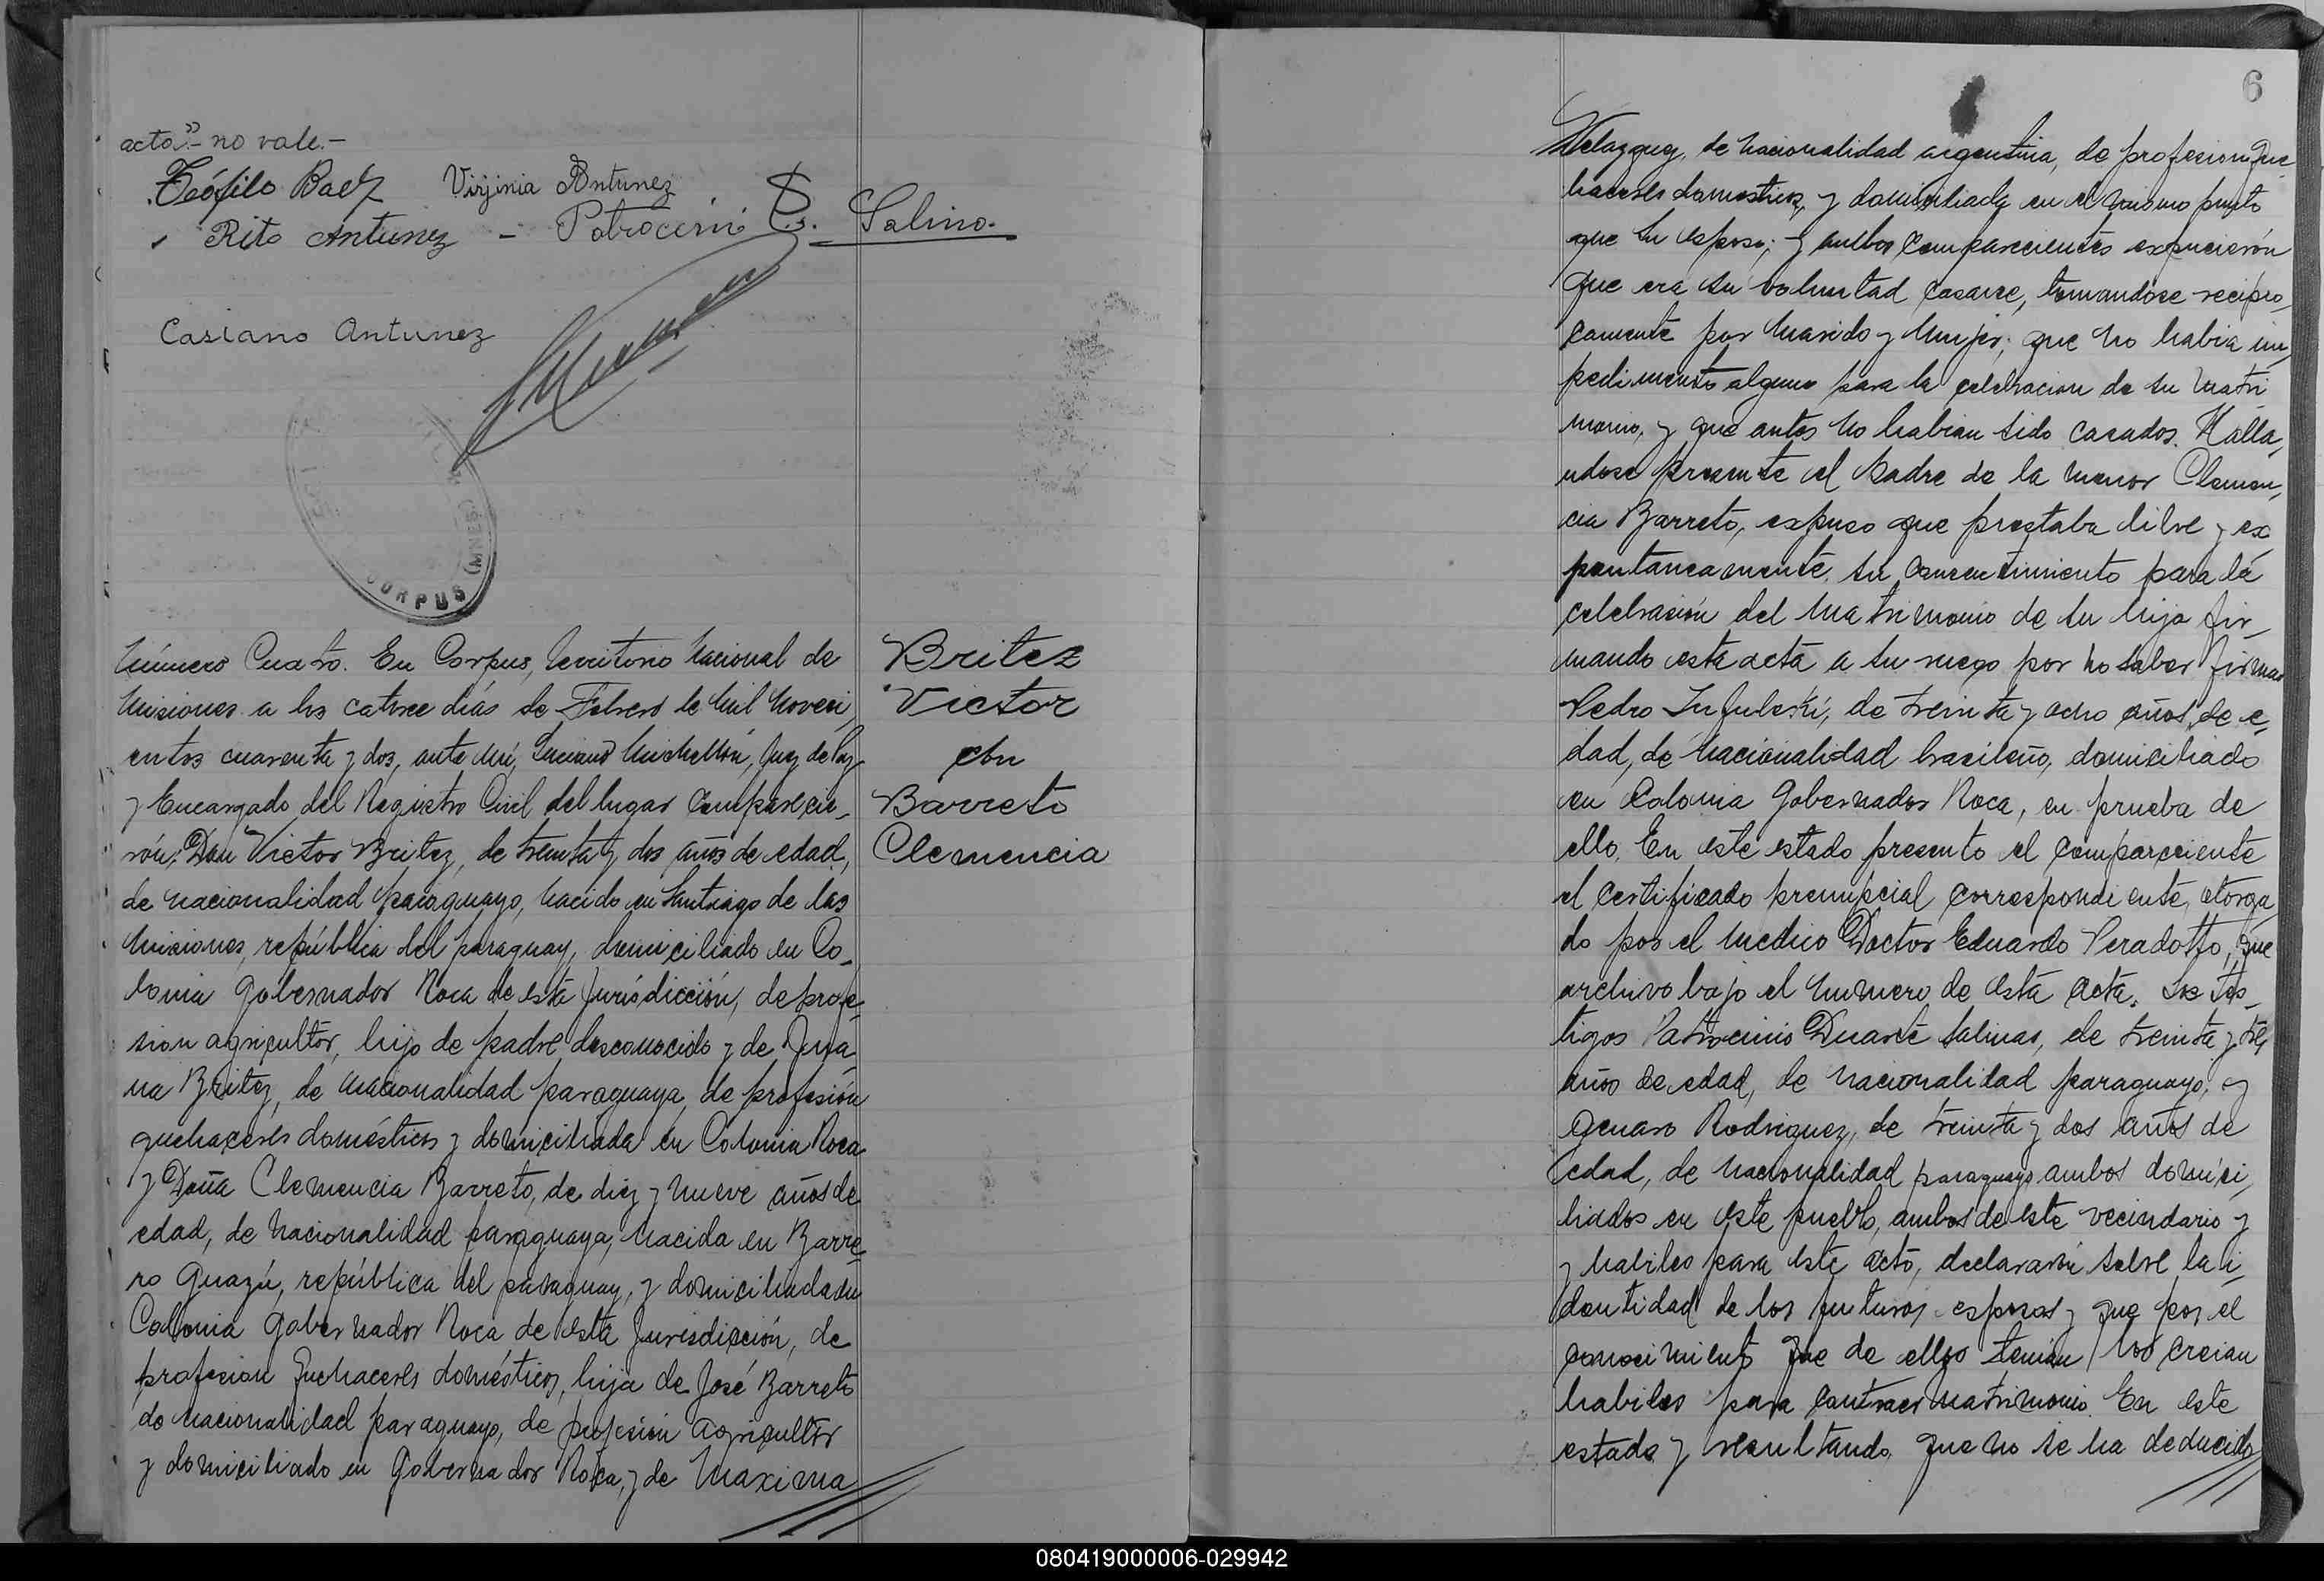 acto"- no vale.-
Teófilo Baez Virjinia Antunez
Rito Antunez - Patrocinio D. Salino.
Casiano Antunez
CORPUS (MNES)
Número Cuatro. En Corpus, territorio Nacional de
Misiones a los catorce días de Febrero de mil noveci
entos cuarenta y dos, ante mí, Luciano Michellón, Juez de Paz
y Encargado del Registro Civil del lugar comparecie-
rón: Don Victor Britez, de treinta y dos años de edad,
de nacionalidad paraguayo, nacido en Santiago de las
Misiones, república del paraguay, domiciliado en Co-
lonia Gobernador Roca de esta Jurisdicción, de profe-
sion agricultor, hijo de padre desconocido y de Jua
na Britez, de nacionalidad paraguaya, de profesión
quehaceres domésticos y domiciliada en Colonia Roca
y Doña Clemencia Barreto, de diez y nueve años de
edad, de nacionalidad paraguaya, nacida en Barre
ro Guazú, república del paraguay, y domiciliada en
Colonia Gobernador Roca de esta Jurisdicción, de
profesion quehaceres domésticos, hija de José Barreto
de nacionalidad paraguayo, de profesión agricultor
y domiciliado en Gobernador Roca, y de Maxima
Britez
Victor
con
Barreto
Clemencia
6
Velazquez, de nacionalidad argentina, de profesion que
haceres domesticos, y domiciliada en el mismo punto
que su esposo; y ambos comparecientes expucierón
que era su voluntad casarse, tomandose recipro
camente por marido y mujer; que no habia im
pedimento alguno para la celebracion de su matri
monio, y que antes no habian sido casados. Halla,
ndose presente el padre de la menor Clemen,
cia Barreto, expuso que prestaba libre y ex
pontaneamente su consentimiento para la
celebrasión del matrimonio de su hija fir-
mando esta acta a su ruego por no saber firmar
Pedro, de treinta y ocho años de e,
dad, de nacionalidad brasileño, domiciliado
en Colonia Gobernador Roca, en prueba de
ello. En este estado presento el compareciente
el certificado prenupcial correspondiente, otorga
do por el medico Doctor Eduardo Peradotto, que
archivo bajo el numero de esta acta. Los tes-
tigos Patrocinio Duarte Salinas, de treinta y tres
años de edad, de nacionalidad paraguayo, y
Genaro Rodriguez, de treinta y dos años de
edad, de nacionalidad paraguayo ambos domici,
liados en este pueblo, ambos de este vecindario y
y habiles para este acto, declararón sobre la i,
dentidad de los futuros esposos y que por el
conocimiento que de ellos tenian los creian
habiles para contraer matrimonio. En este
estado y resultando que no se ha deducido
080419000006-029942